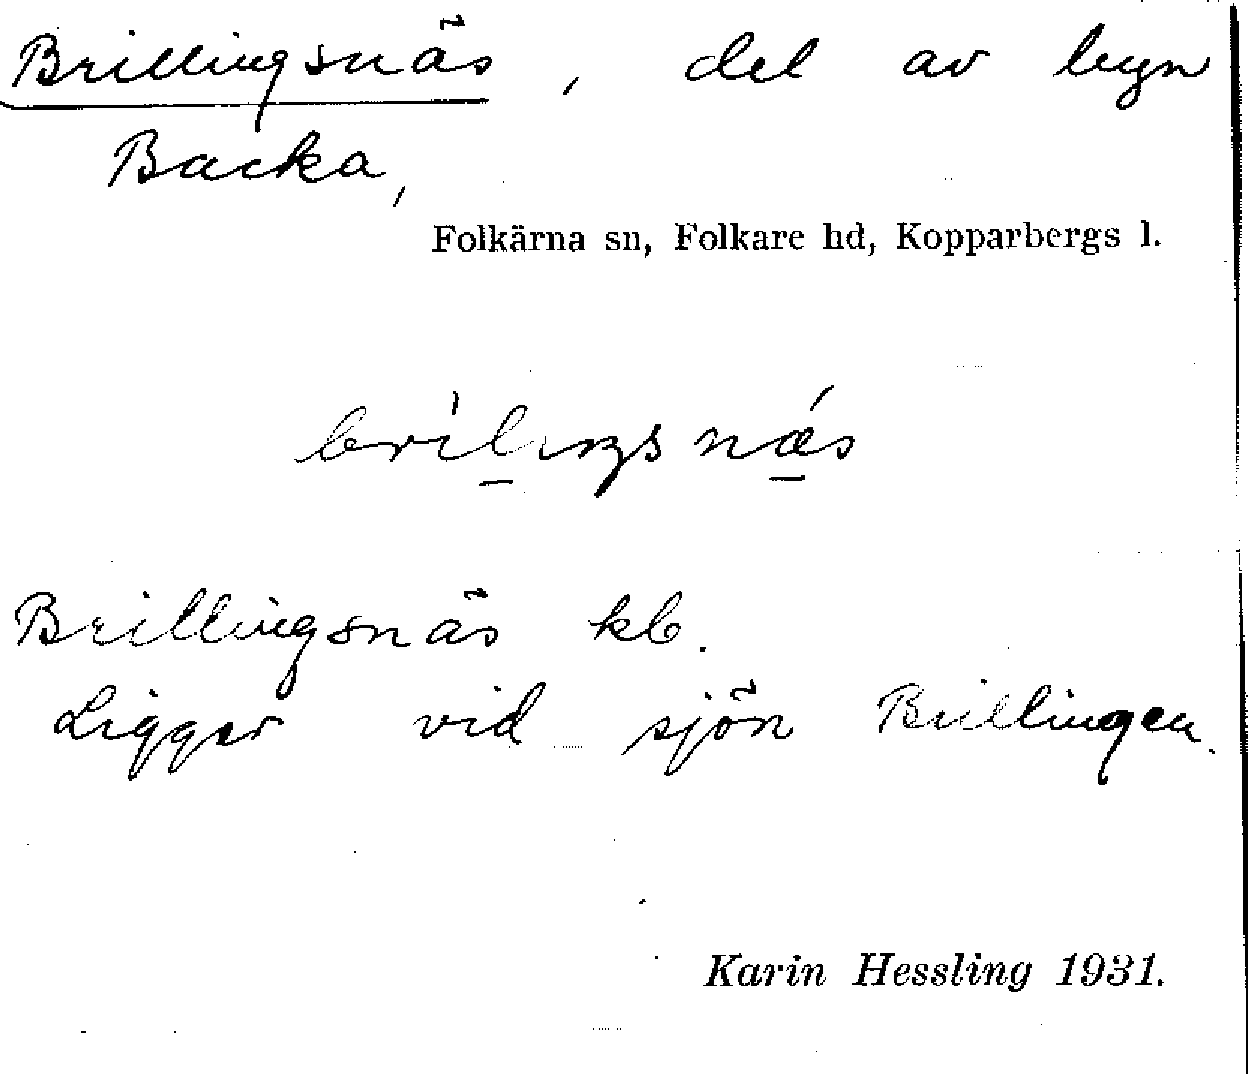 Brillingsnäs, del av byn
Backa,
Folkärna sn, Folkare hd, Kopparbergs l.
Brillingsnäs kb.
Ligger vid sjön Brillingen.
Karin Hessling 1931.